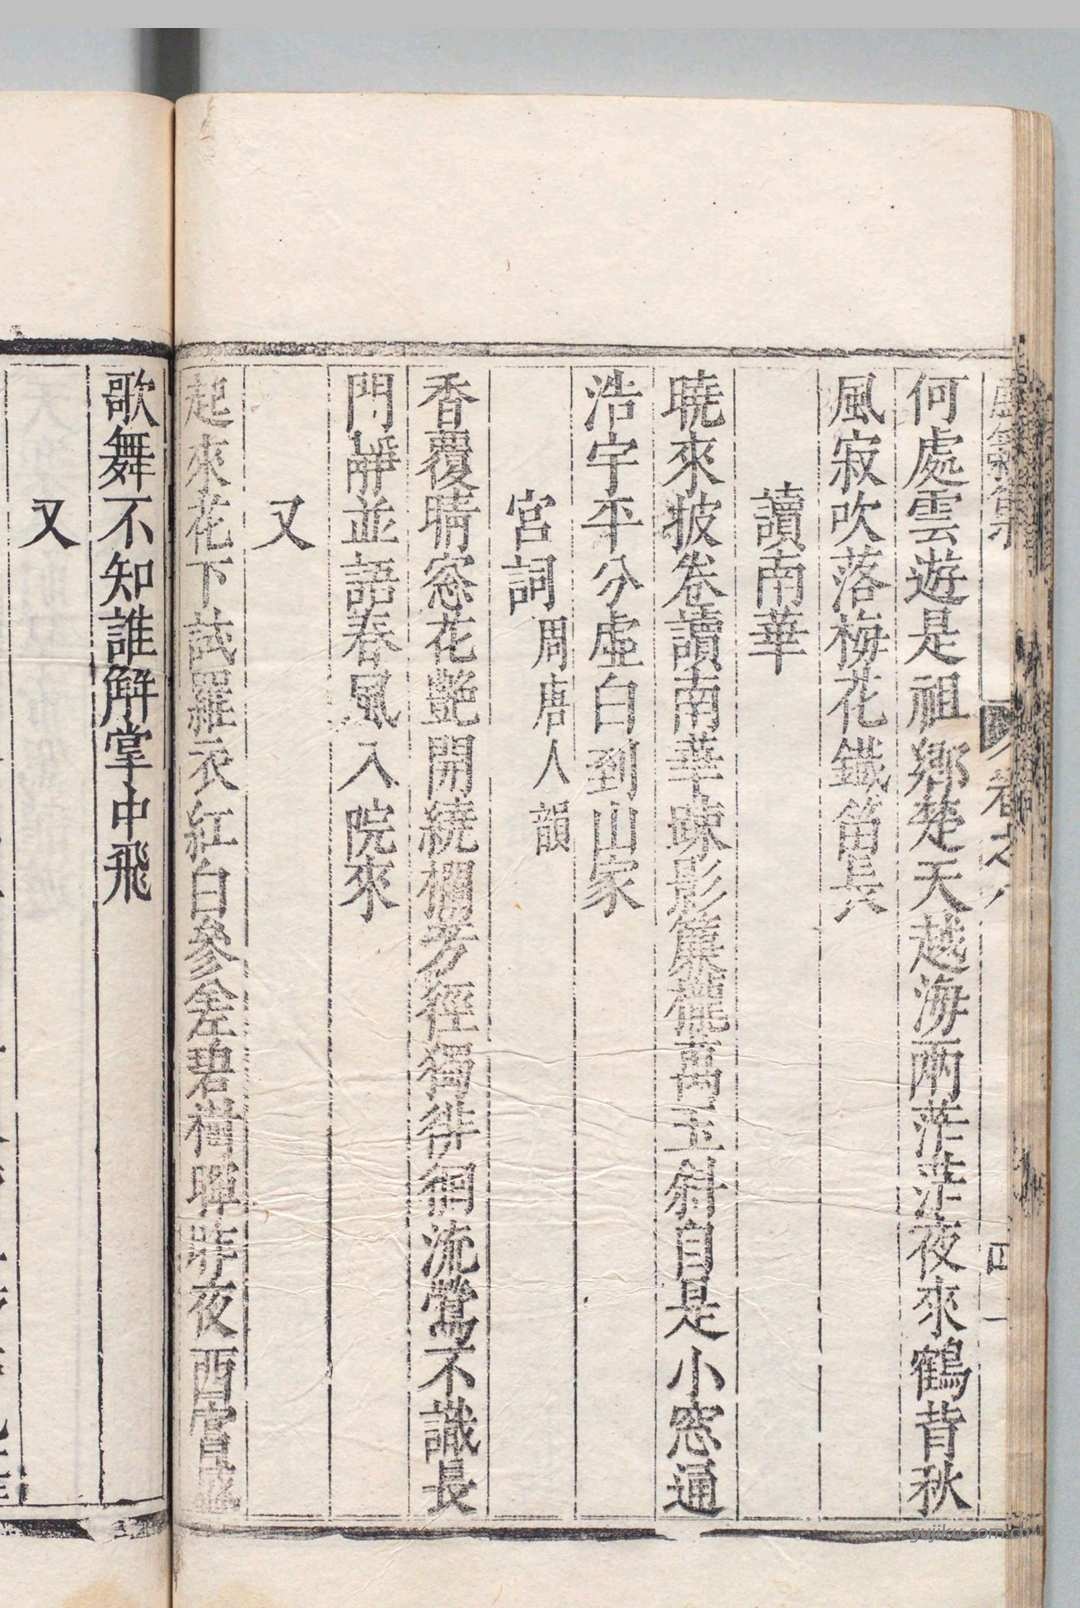 何處雲遊是祖鄉楚天越海兩茫茫夜來鶴背秋
風寂吹落梅花鐵笛長
讀南華
曉來披卷讀南華疎影簾櫳萬玉斜自是小窓通
浩宇平分虛白到山家
宮詞周唐人韻
香覆晴窓花艶開繞欄芳徑獨徘徊流鶯不識長
門靜並語春風入院來
又
起來花下試羅衣紅白參差碧樹暉昨夜西宮盛
歌舞不知誰解掌中飛
又